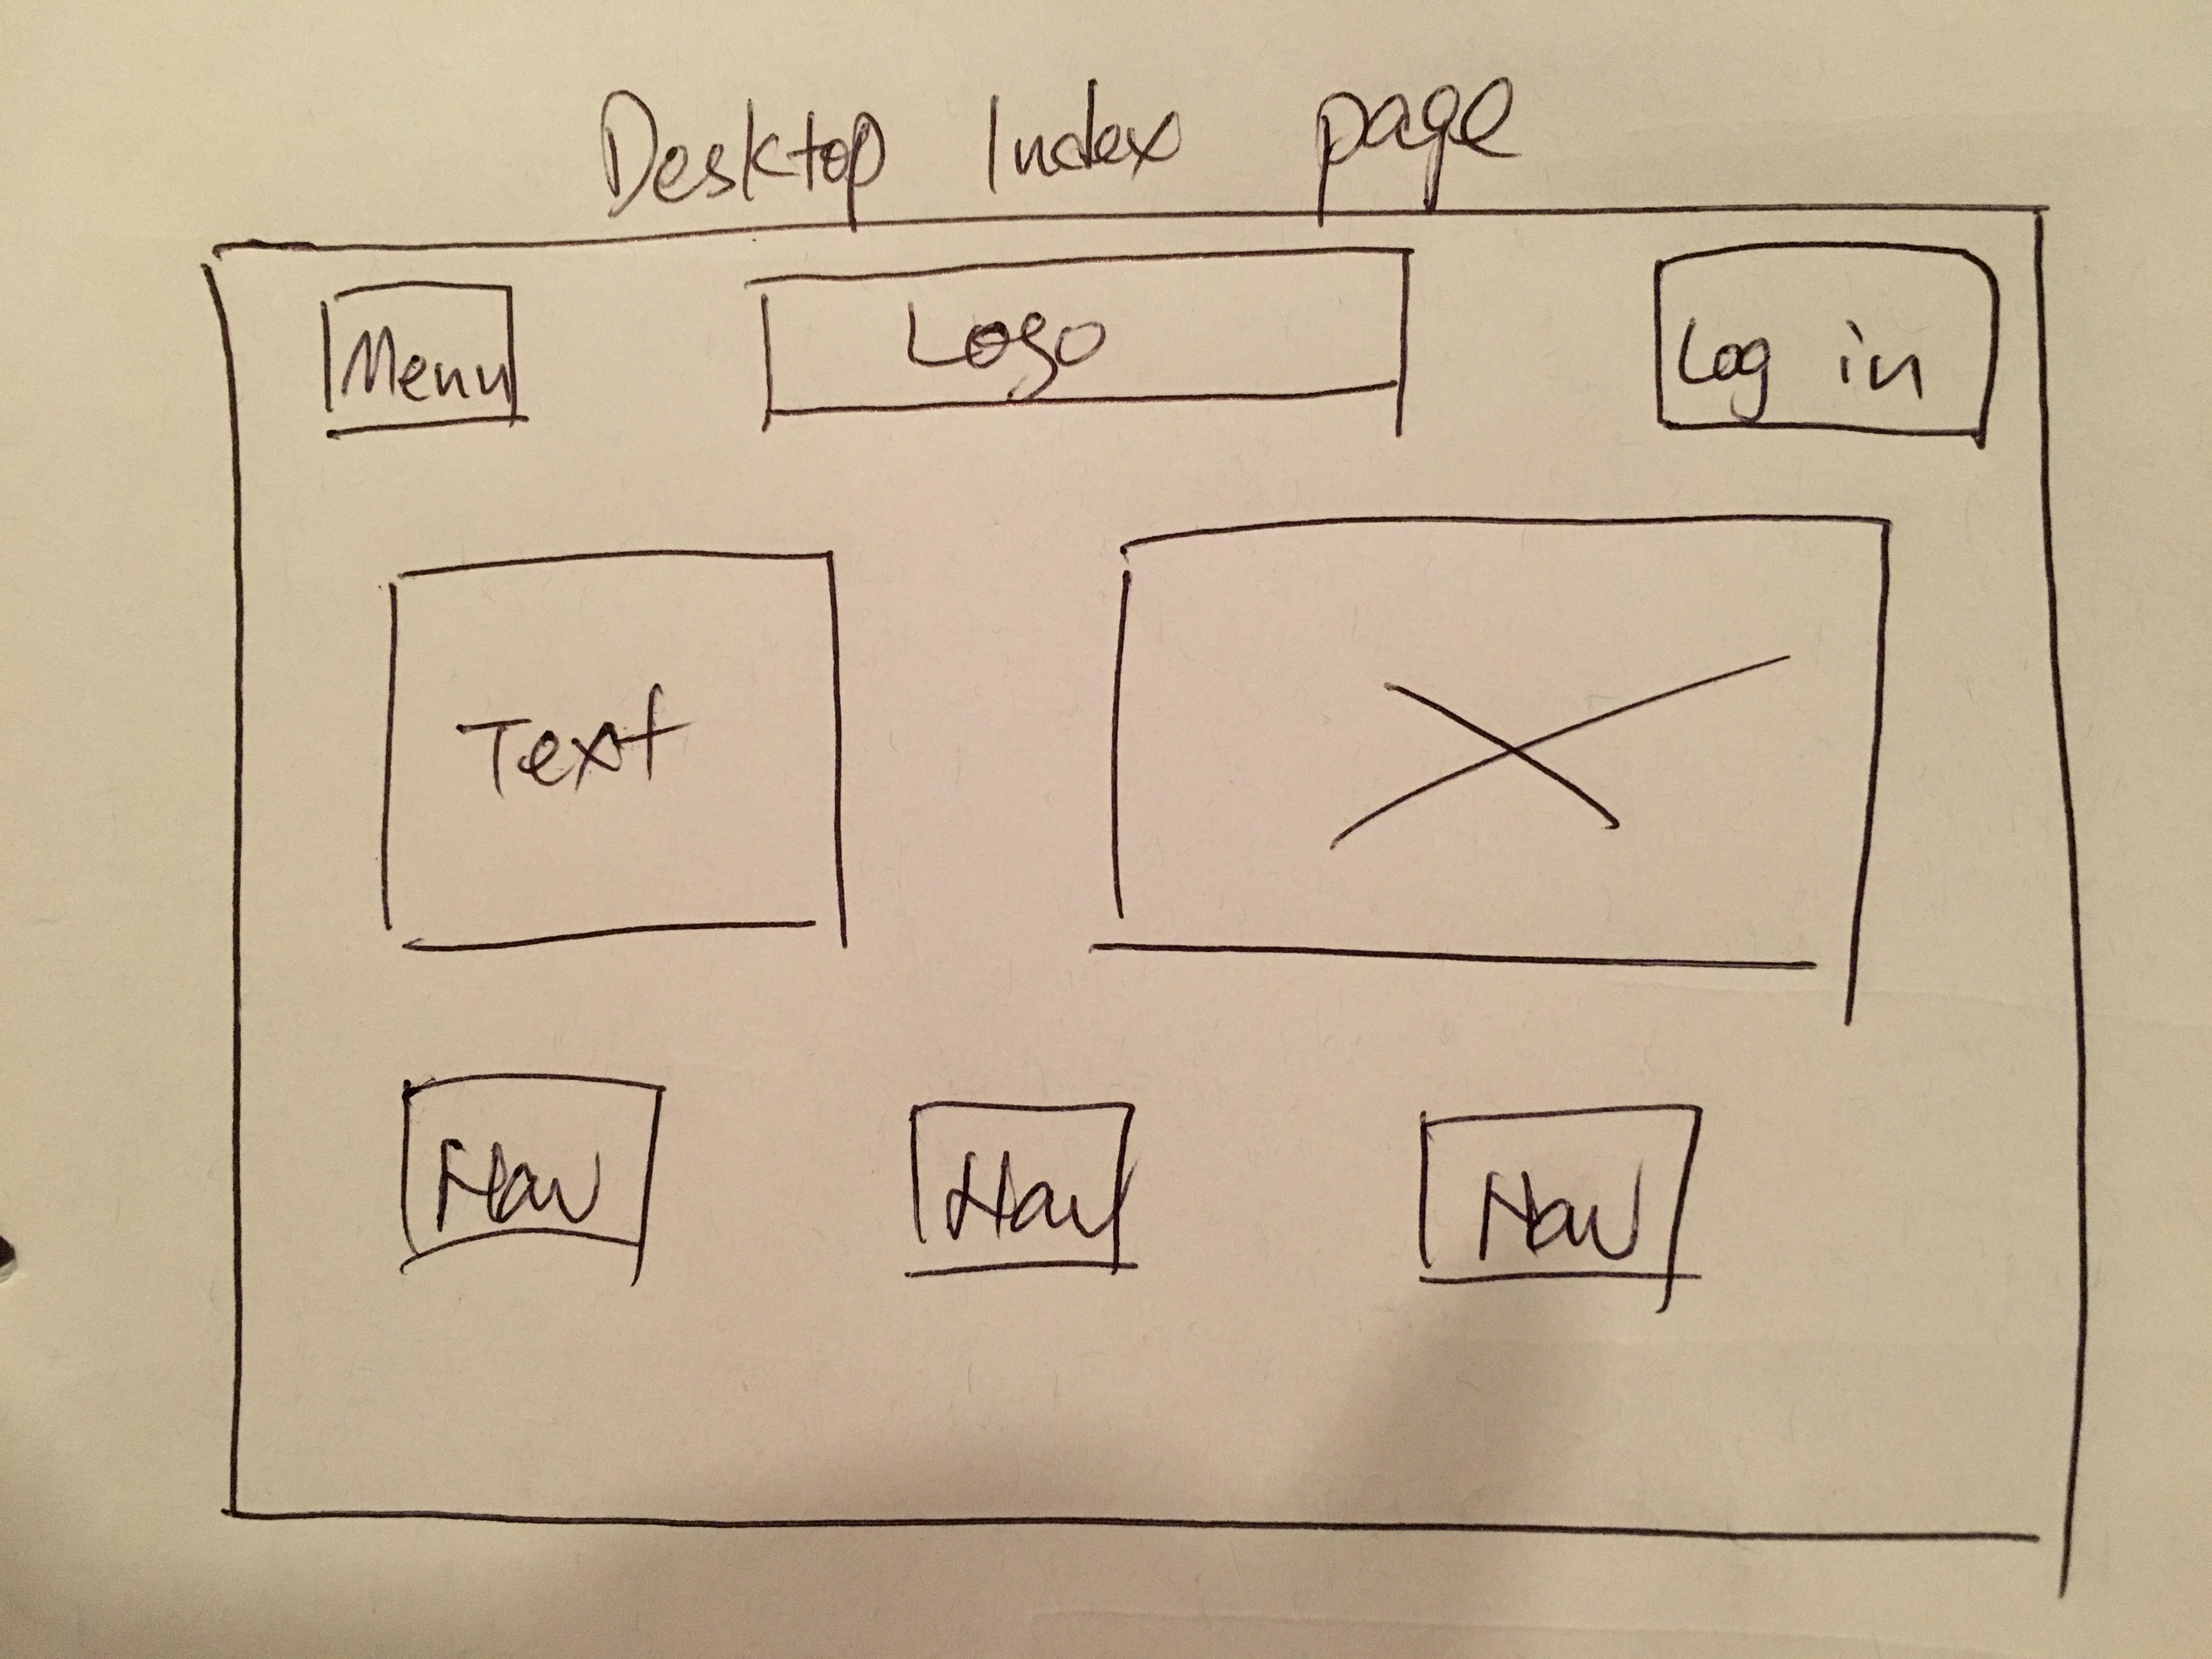 Desktop Index page
Menu Logo Log in
Text
Nav Nav Nav